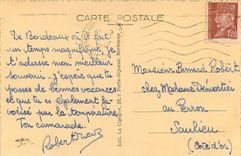 CARTE POSTALE
De Bordeaux où il fait
un temps magnifique, je
t'adresse mon meilleur
souvenir. J'espère que tu
passes de bonnes vacances
et que tu es également fa-
vorisé par la température.
Ton camarade.
Robert
Monsieur Bernard Robert
chez Madame
au Perron
Saulieu
(Côte d'or)
1f20